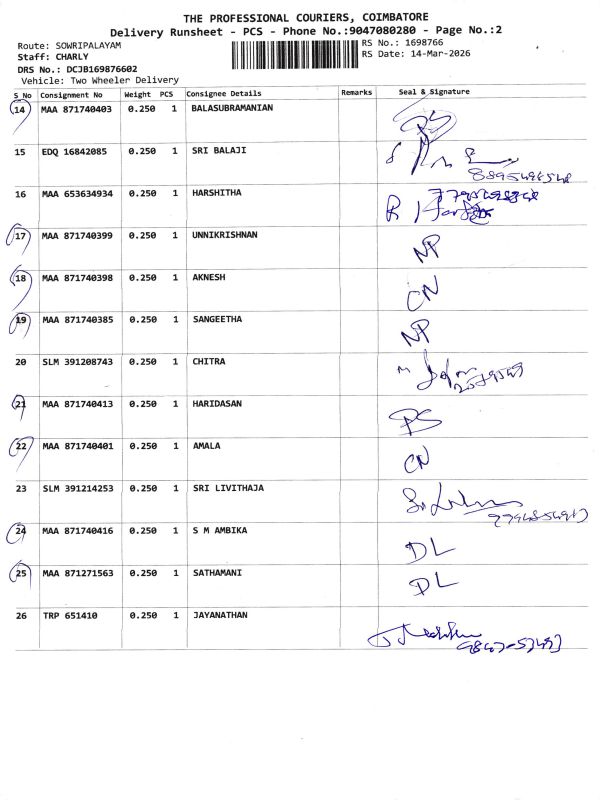 THE PROFESSIONAL COURIERS, COIMBATORE
Delivery Runsheet - PCS - Phone No.:9047080280 - Page No.:2
Route: SOWRIPALAYAM RS No.: 1698766
Staff: CHARLY RS Date: 14-Mar-2026
DRS No.: DCJB169876602
Vehicle: Two Wheeler Delivery
S No Consignment No Weight PCS Consignee Details Remarks Seal & Signature
14 MAA 871740403 0.250 1 BALASUBRAMANIAN PS
15 EDQ 16842085 0.250 1 SRI BALAJI
16 MAA 653634934 0.250 1 HARSHITHA
17 MAA 871740399 0.250 1 UNNIKRISHNAN NP
18 MAA 871740398 0.250 1 AKNESH CN
19 MAA 871740385 0.250 1 SANGEETHA NP
20 SLM 391208743 0.250 1 CHITRA
21 MAA 871740413 0.250 1 HARIDASAN PS
22 MAA 871740401 0.250 1 AMALA CN
23 SLM 391214253 0.250 1 SRI LIVITHAJA
24 MAA 871740416 0.250 1 S M AMBIKA DL
25 MAA 871271563 0.250 1 SATHAMANI DL
26 TRP 651410 0.250 1 JAYANATHAN